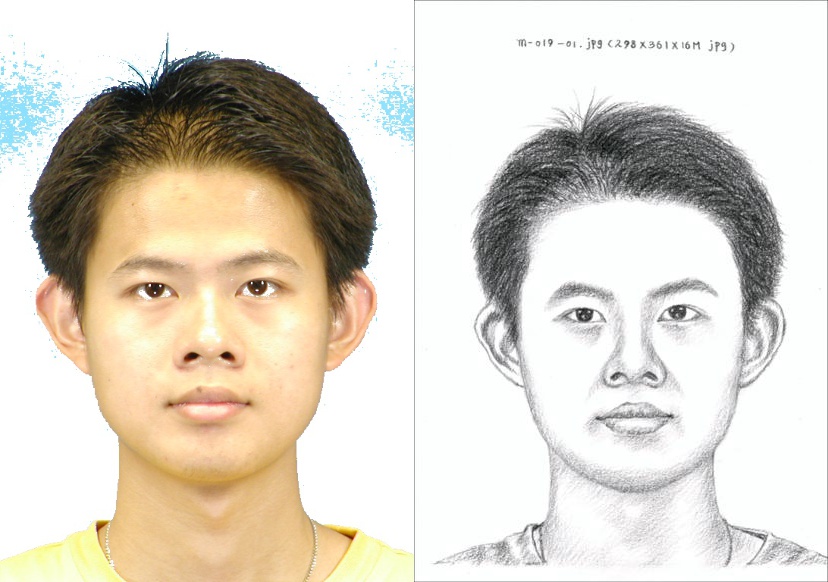 m-019-01.jpg(298X361X16M jpg)